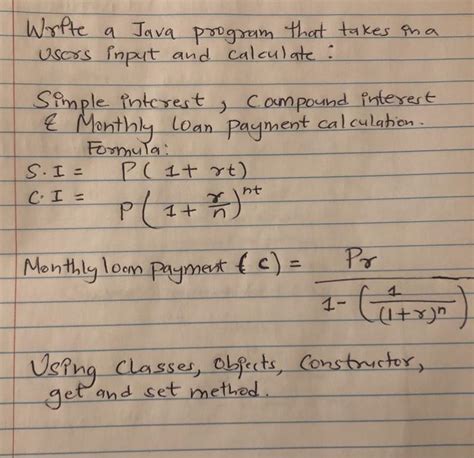 Write a Java program that takes in a
users input and calculate :
Simple interest , Compound interest
& Monthly loan payment calculation.
Formula:
S.I = P( 1 + rt)
C.I = P( 1 + r/n )^nt
Monthly loan payment ( c) = Pr / 1 - ( 1 / (1+r)^n )
Using classes, Objects, Constructor,
get and set method.